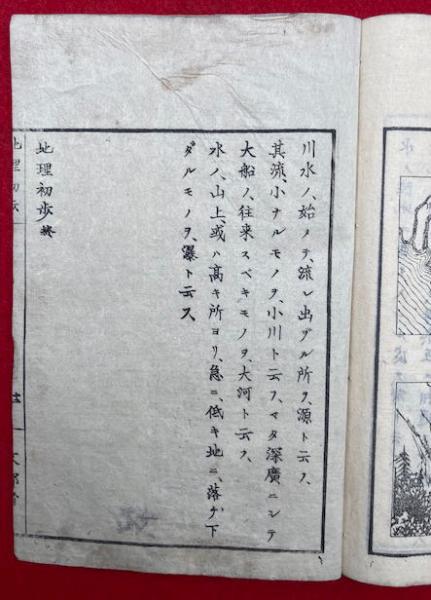 川水ノ、始メテ、流レ出ヅル所ヲ、源ト云フ、
其流、小ナルモノヲ、小川ト云フ、マタ深廣ニシテ
大船ノ、往来スベキモノヲ、大河ト云フ、
水ノ、山上、或ハ高キ所ヨリ、急ニ、低キ地ニ、落チ下
ダルモノヲ、瀑ト云ス
地理初歩終
地理初歩